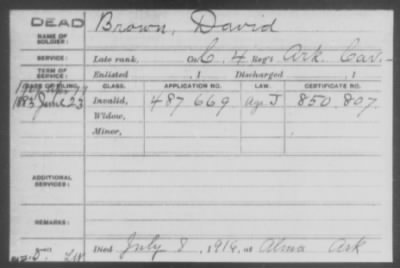 DEAD
NAME OF SOLDIER:
Brown, David
SERVICE:
Late rank, Co. C, 4 Reg't Ark. Cav.
TERM OF SERVICE:
Enlisted , 1 Discharged , 1
DATE OF FILING. CLASS. APPLICATION NO. LAW. CERTIFICATE NO.
1883 June 23 Invalid, 487 669 J 850.807.
Widow,
Minor,
ADDITIONAL SERVICES:
REMARKS:
Died July 8, 1916, at Alma Ark